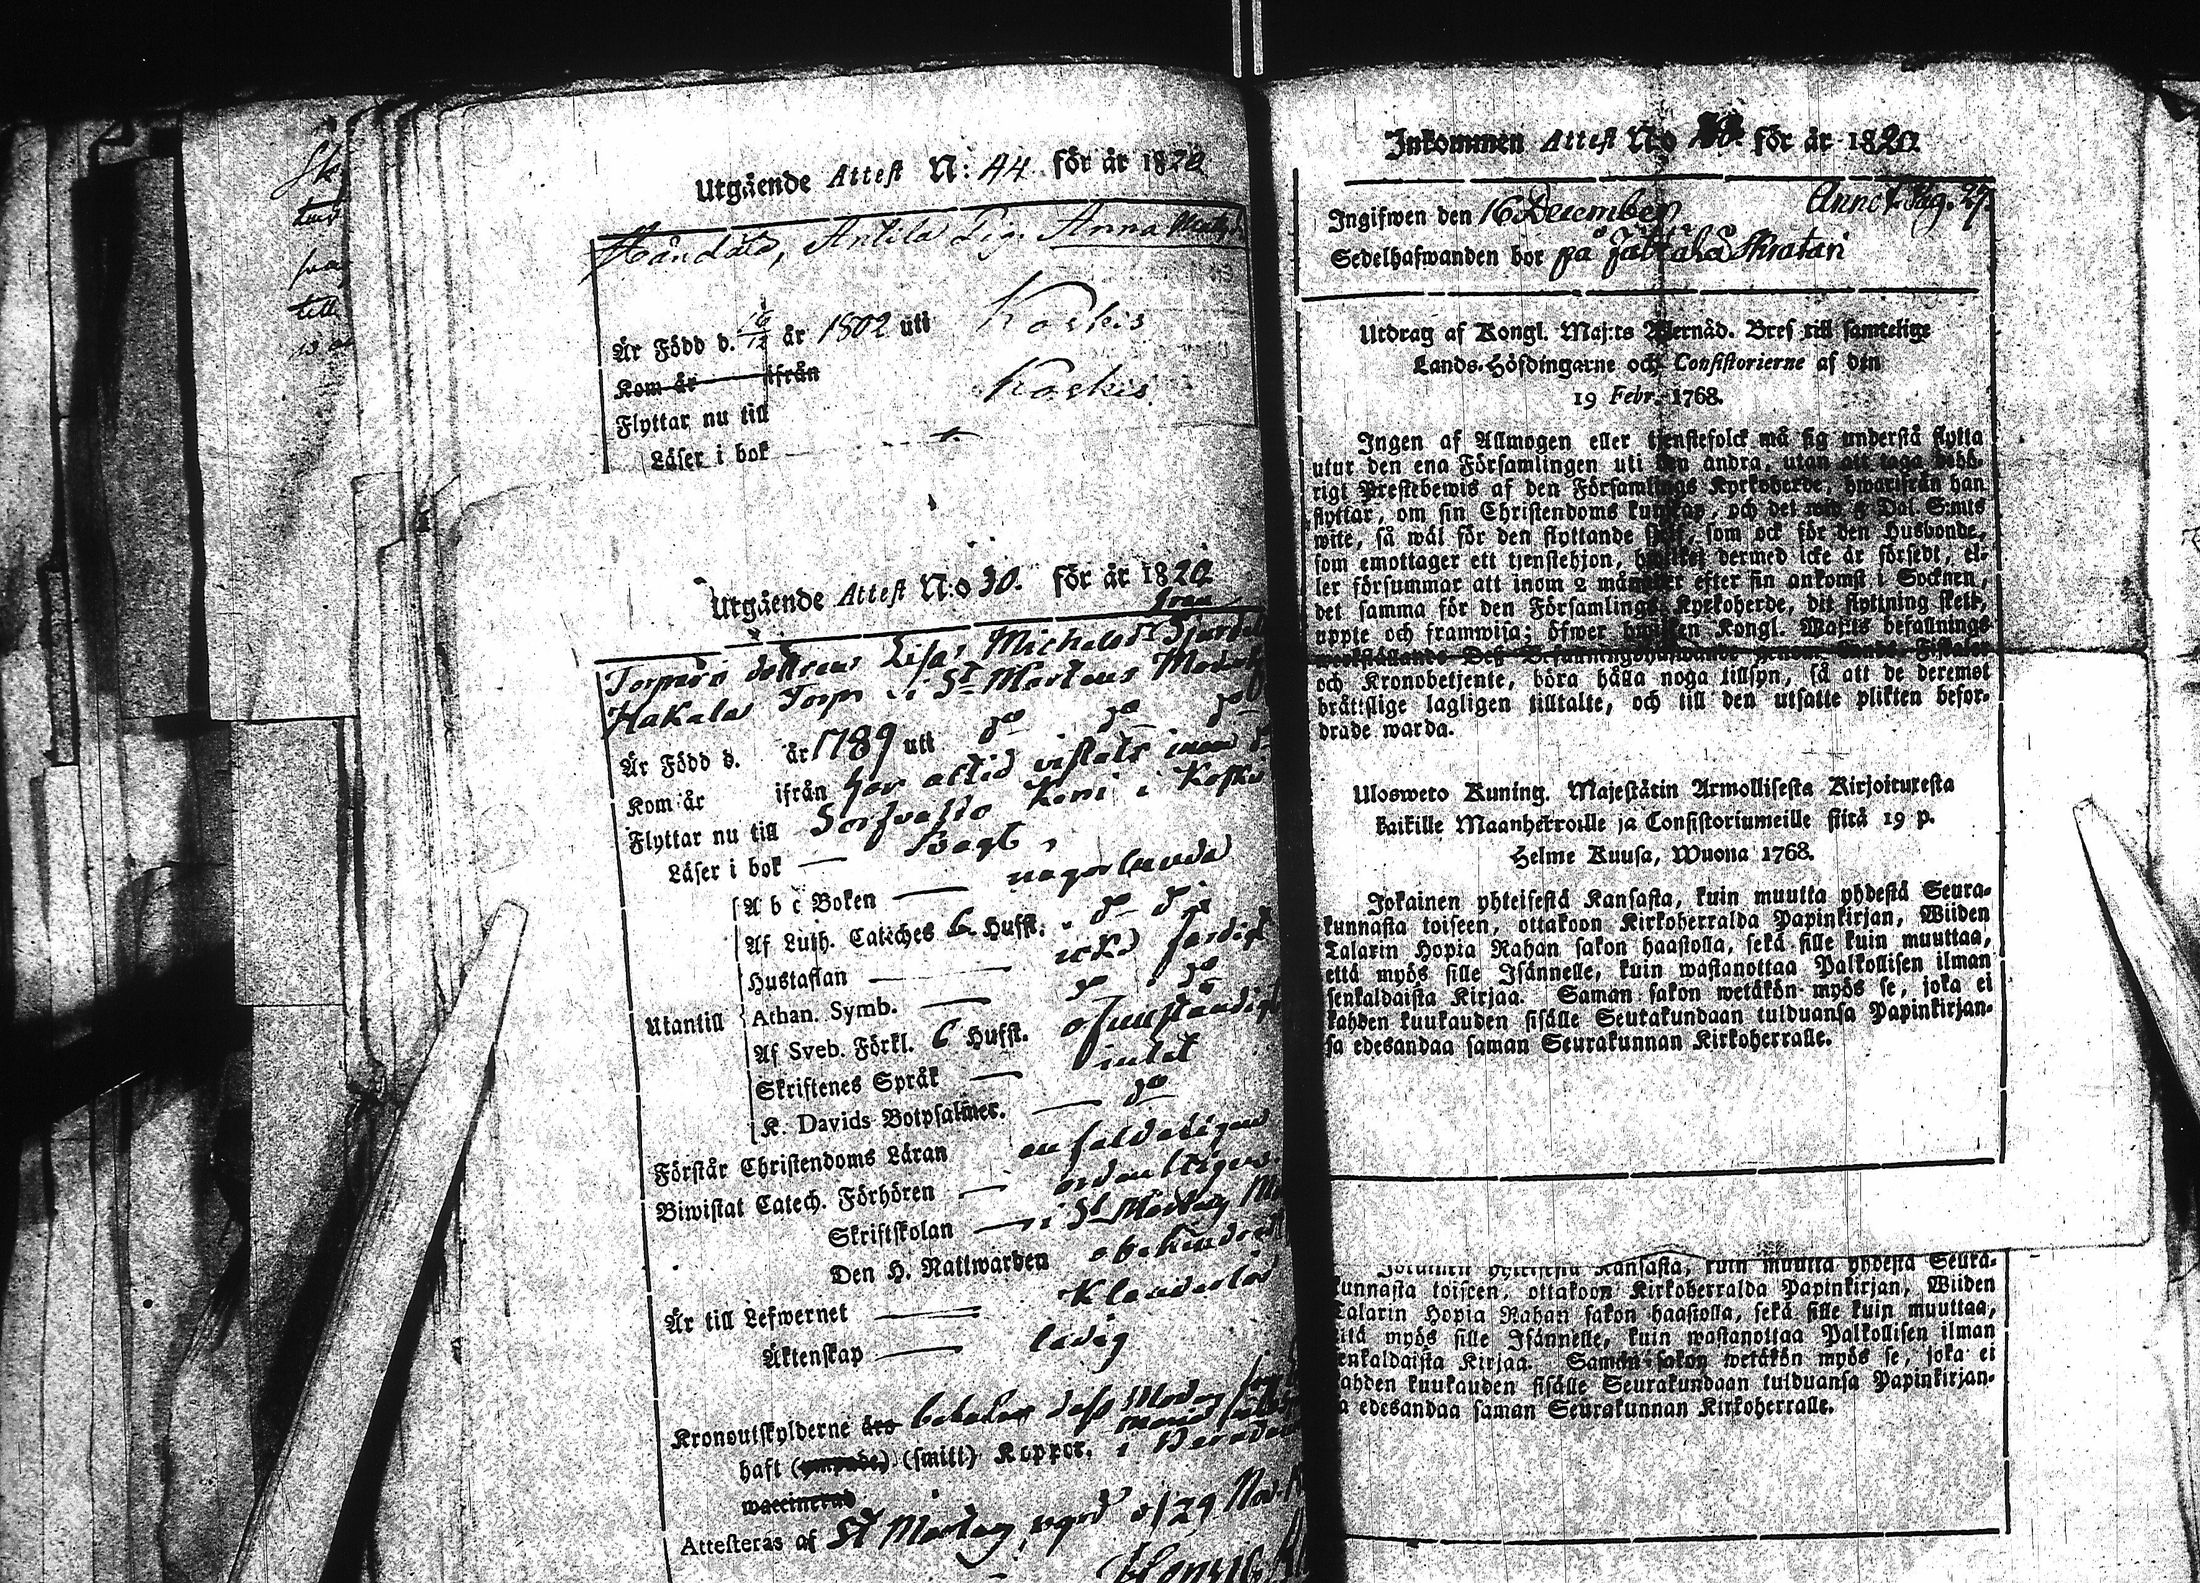 Utgående Attest N: 44 för år 1820
Håndala, Antila Pig. Anna
Är Född d. 16/12 år 1802 uti Koskis
Kom år ifrån
Flyttar nu till Koskis
Läser i bok
Utgående Attest N:o 30. för år 1820
från
Torparedottren Lisa Michelsdr
Hakala Torp i St Mårtens
Är Född d. år 1789 uti do do do
Kom år ifrån har altid vistats inom
Flyttar nu till Sorvasto Koni i Koskis
Läser i bok Svagt
A b c Boken någorlunda
Af Luth. Cateches 6. Hufst. do do
Hustaflan icke färdigt
Athan. Symb. do do
Utantill
Af Sveb. Förkl. 6 Hufst. ofullständigt
Skriftenes Språk intet
K. Davids Botpsalmer. do
Förstår Christendoms Läran enfaldeligen
Biwistat Catech. Förhören ordentligen
Skriftskolan i St Mårtens
Den H. Nattwarden obehindrad
Är till Lefwernet Klanderlös
Äktenskap ledig
Kronoutskylderne äro betalar dess Moder
haft (ympade) (smitt) Koppor.
waccinerad
Attesteras af St Mårtens d 29 Nov.
Inkommen Attest N:o för år 1820.
Ingifwen den 16 December Annot. Pag. 27.
Sedelhafwanden bor på
Utdrag af Kongl. Maj:ts Wernåd. Bref till samtelige
Lands-Höfdingarne och Consistorierne af den
19 Febr. 1768.
Ingen af Allmogen eller tjenstefolck må sig understå flytta
utur den ena Församlingen uti den andra, utan att taga behö-
rigt Prestebewis af den Församlings Kyrkoherde, hwarifrån han
flyttar, om sin Christendoms kunskap, och det wid 5 Dal. S:mts
wite, så wäl för den flyttande sielf, som ock för den Husbonde,
som emottager ett tjenstehjon, hwilket dermed icke är försedt, el-
ler försummar att inom 2 månader efter sin ankomst i Socknen,
det samma för den Församlings Kyrkoherde, dit flyttning skett,
uppte och framwisa; öfwer hwilken Kongl. Maj:ts befallnings
werkställande Dess Befallningshafwande genom Lands-Fiskaler
och Kronobetjente, böra hålla noga tillsyn, så att de deremot
bråttslige lagligen tilltalte, och till den utsatte plikten befor-
drade warda.
Ulosweto Kuning. Majestätin Armollisesta Kirjoituxesta
kaikille Maanherroille ja Consistoriumeille siitä 19 p.
Helme Kuusa, Wuona 1768.
Jokainen yhteisestä Kansasta, kuin muutta yhdestä Seura-
kunnasta toiseen, ottakoon Kirkoherralda Papinkirjan, Wiiden
Talarin Hopia Rahan sakon haastolla, sekä sille kuin muuttaa,
että myös sille Isännelle, kuin wastanottaa Palkollisen ilman
senkaldaista Kirjaa. Saman sakon wetäkön myös se, joka ei
kahden kuukauden sisälle Seurakundaan tulduansa Papinkirjan-
sa edesandaa saman Seurakunnan Kirkoherralle.
Jokainen yhteisestä Kansasta, kuin muutta yhdestä Seura-
kunnasta toiseen, ottakoon Kirkoherralda Papinkirjan, Wiiden
Talarin Hopia Rahan sakon haastolla, sekä sille kuin muuttaa,
että myös sille Isännelle, kuin wastanottaa Palkollisen ilman
senkaldaista Kirjaa. Saman sakon wetäkön myös se, joka ei
kahden kuukauden sisälle Seurakundaan tulduansa Papinkirjan-
sa edesandaa saman Seurakunnan Kirkoherralle.